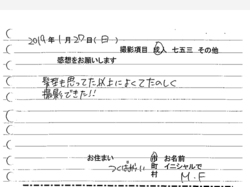 2019年1月27日(日)
撮影項目 成人 七五三 その他
感想をお願いします
髪型も思ってた以上によくてたのしく
撮影できた!!
お住まい 市町村 お名前 イニシャルで
つくばみらい M.F